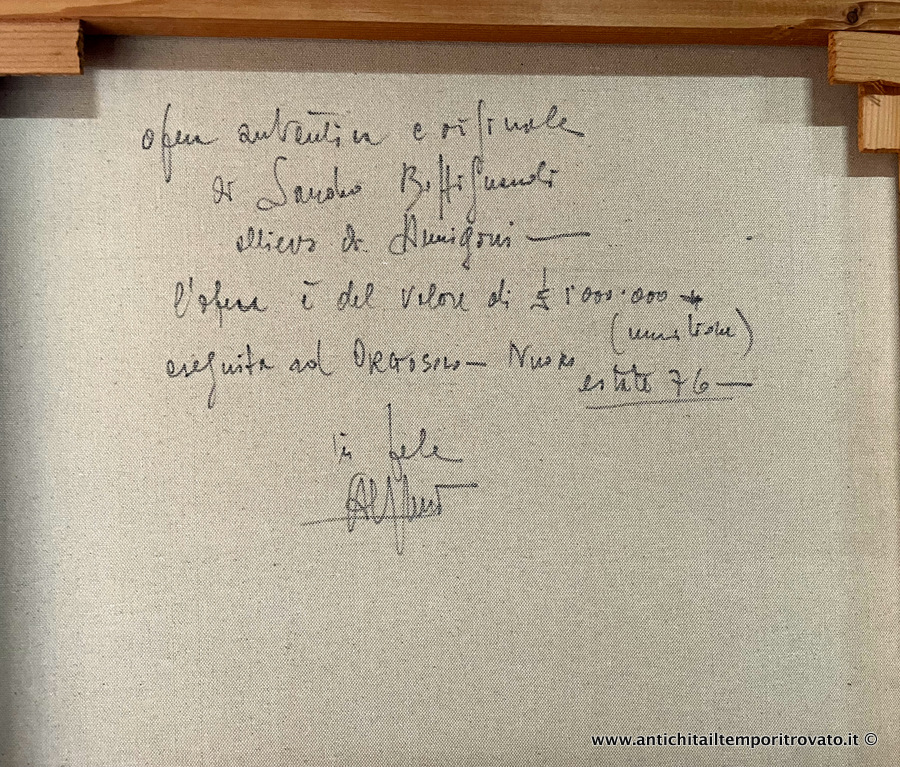 opera autentica e originale
di Sandro
allievo di Annigoni —
l'opera è del valore di £ 1000.000
(un milione)
eseguita ad ORGOSOLO — Nuoro
estate 76 —
in fede
www.antichitailtemporitrovato.it ©